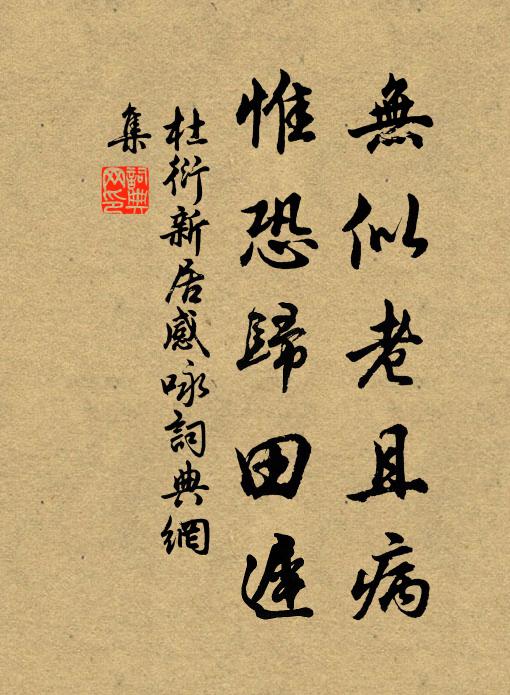 無似老且病
惟恐歸田遲
杜衍新居感咏詞典網
集
詞典网印